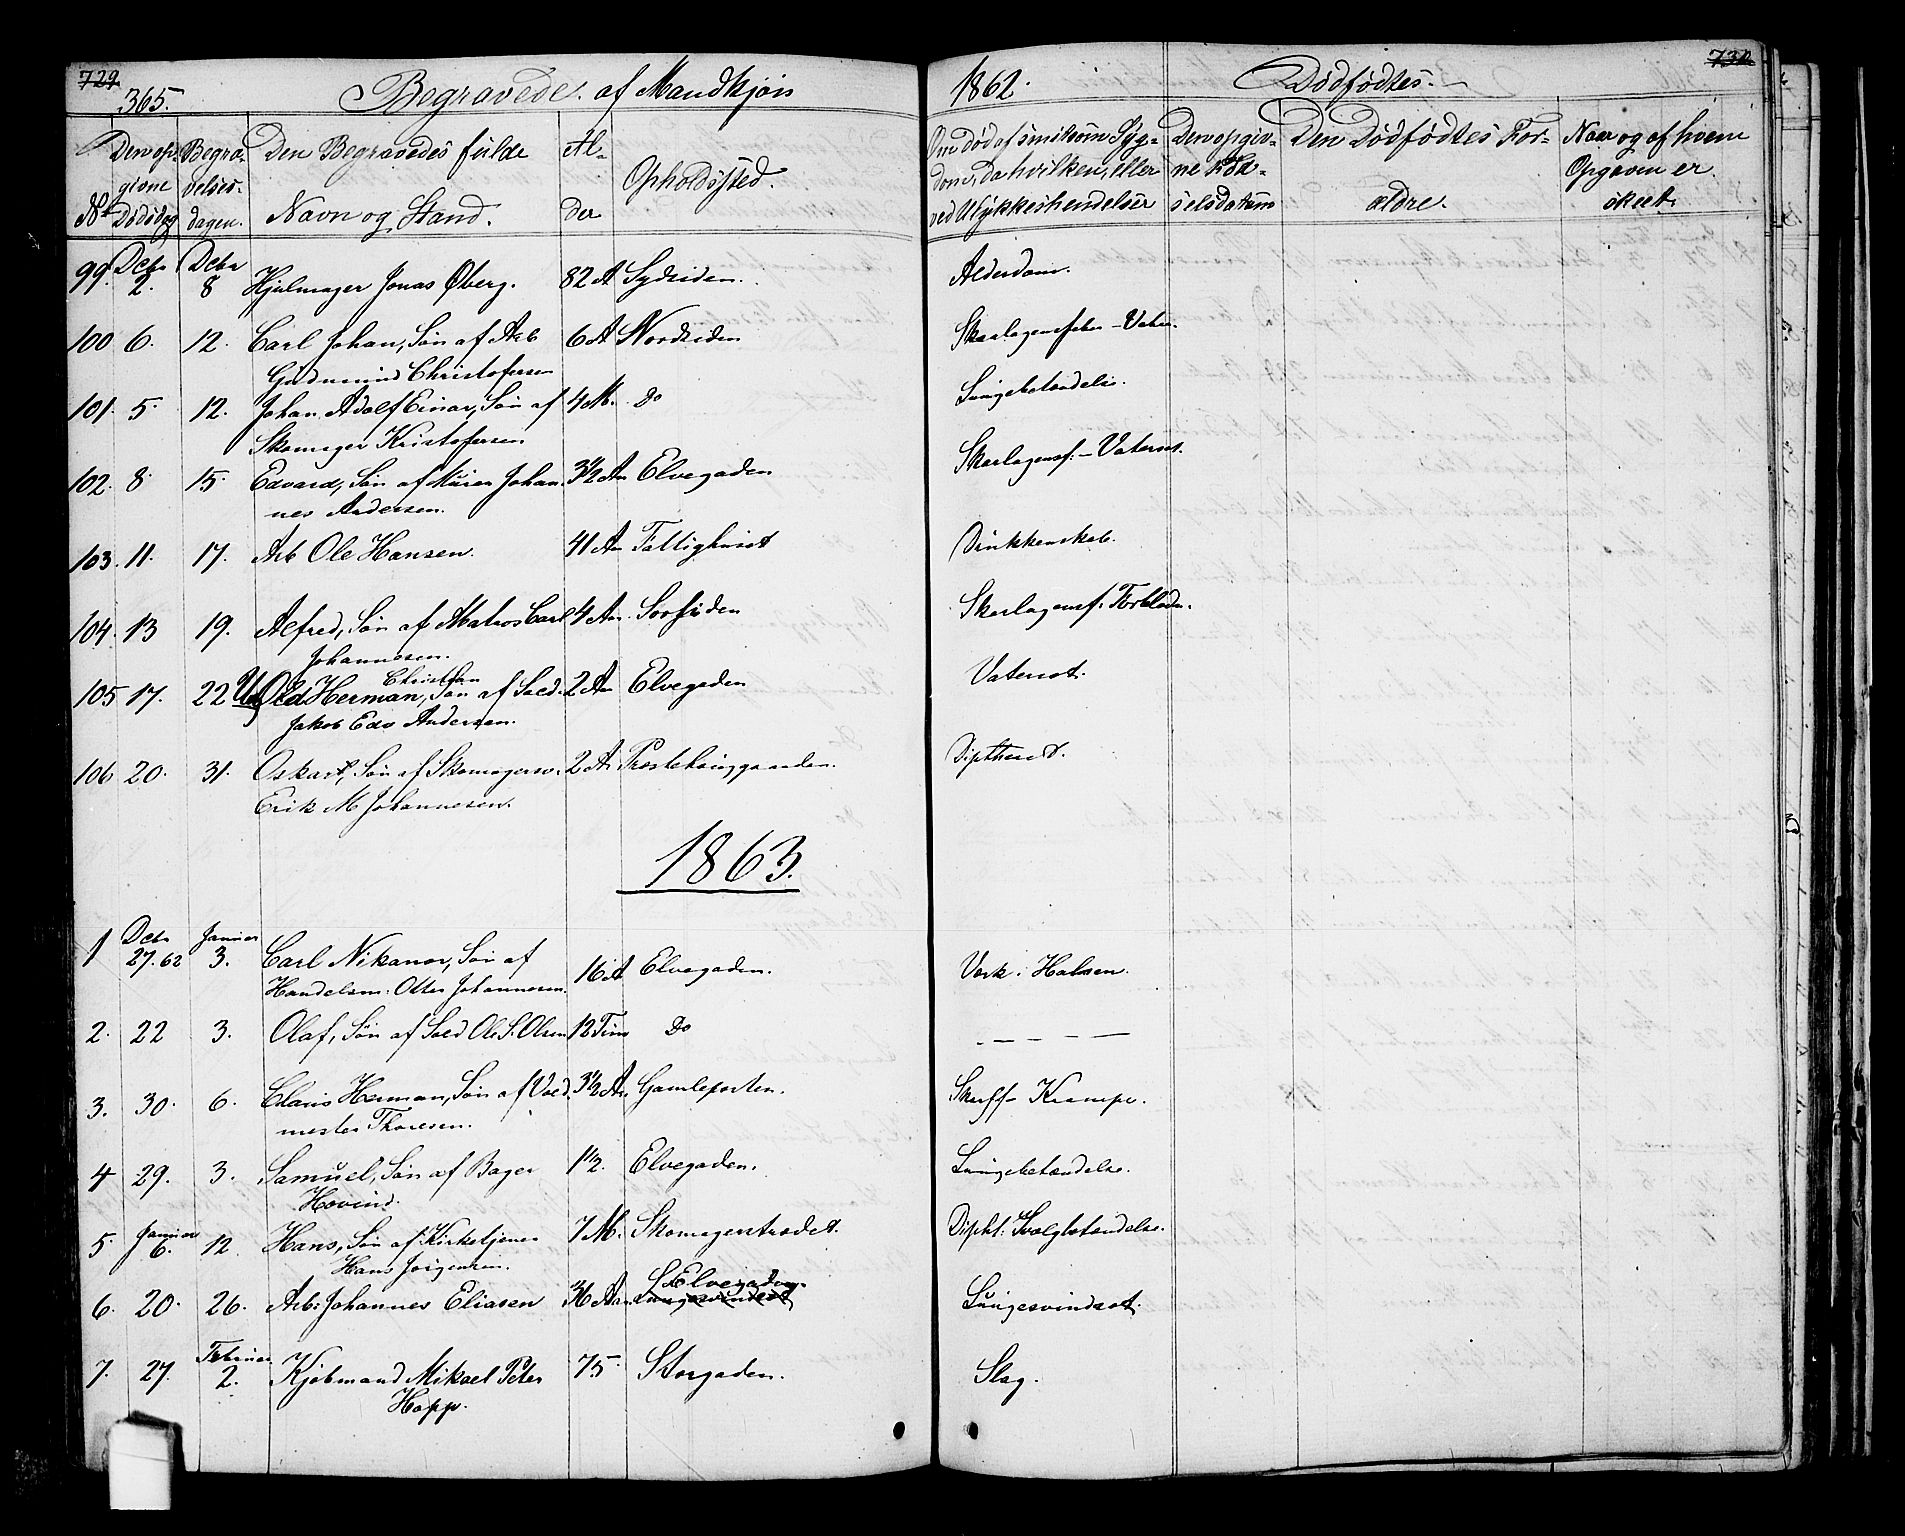 729
365.
Begravede af Mandkjøn
1862.
Dødfødtes.
Nr
Den opgivne Dødsdag
Begravelsesdagen.
Den Begravedes fulde Navn og Stand.
Alder
Opholdssted.
Om død af smitsom Sygdom, da hvilken, eller ved Ulykkeshendelser
Den opgivne Fødselsdatum
Den Dødfødtes Forældre.
Naar og af hvem Opgaven er skeet.
99. Decbr 2. Decbr 8 Hjulmager Jonas Øberg. 82 A Sydsiden. Alderdom.
100 6. 12. Carl Johan, Søn af Arb 6 A Nordsiden Skarlagensfeber – Vaters.
Gudmund Christofersen
101. 5. 12. Johan Adolf Einar, Søn af 4 M. Do Lungebetændelse.
Skomager Kristofersen
102. 8. 15. Edvard, Søn af Murer Johan 3 1/2 Aar Elvegaden Skarlagensf. – Vatersot.
nes Andersen.
103. 11. 17. Arb Ole Hansen. 41 Aar Fattighuset Drukkenskab.
104. 13 19. Alfred, Søn af Matros Carl 4 Aar. Skarlagensf.
Johannesen.
Christian
105 17. 22 Herman, Søn af Soed. 2 Aar Elvegaden Vatersot.
Jakob Edv Andersen.
106 20. 31. Oskar, Søn af Skomagersv. 2 A. Diptherit.
Erik M Johannesen.
1863.
1 Decbr 27. 62 Januar 3. Carl Nikanor, Søn af 16 A Elvegaden. Værk i Halsen.
Handelsm: Otter Johannesen.
2. 22 3. Olaf, Søn af Soed Ole S. Olsen 12 Tim Do — — — — —
3. 30. 6. Claus Herman, Søn af 3 1/2 A. Gamleporten. Krampe.
mester Thoresen.
4 29. 3. Samuel, Søn af Bager 1 1/2. Elvegaden. Lungebetændelse.
Hovind.
5. Januar 6. 12. Hans, Søn af Kirketjener 7 M. Skomagerstrædet. Dipht: Svalgbetændelse.
Hans Jørgensen.
6. 20. 26. Arb: Johannes Eliasen 36 Aar Elvegaden. Lungesvindsot
Lungesvindsot.
7. 27. Februar 2. Kjøbmand Mikael Peter 75. Storgaden. Slag.
Hopp.